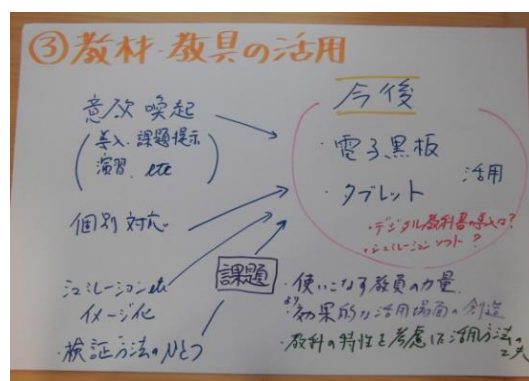 ③教材・教具の活用
意欲喚起
(導入、課題提示
演習、etc)
個別対応
シュミレーションetc
イメージ化
・検証方法のひとつ
今後
・電子黒板
・タブレット
活用
・デジタル教科書の導入は?
・シュミレーションソフト?
課題
・使いこなす教員の力量
・より効果的な活用場面の創造
・教科の特性を考慮した活用方法の工夫